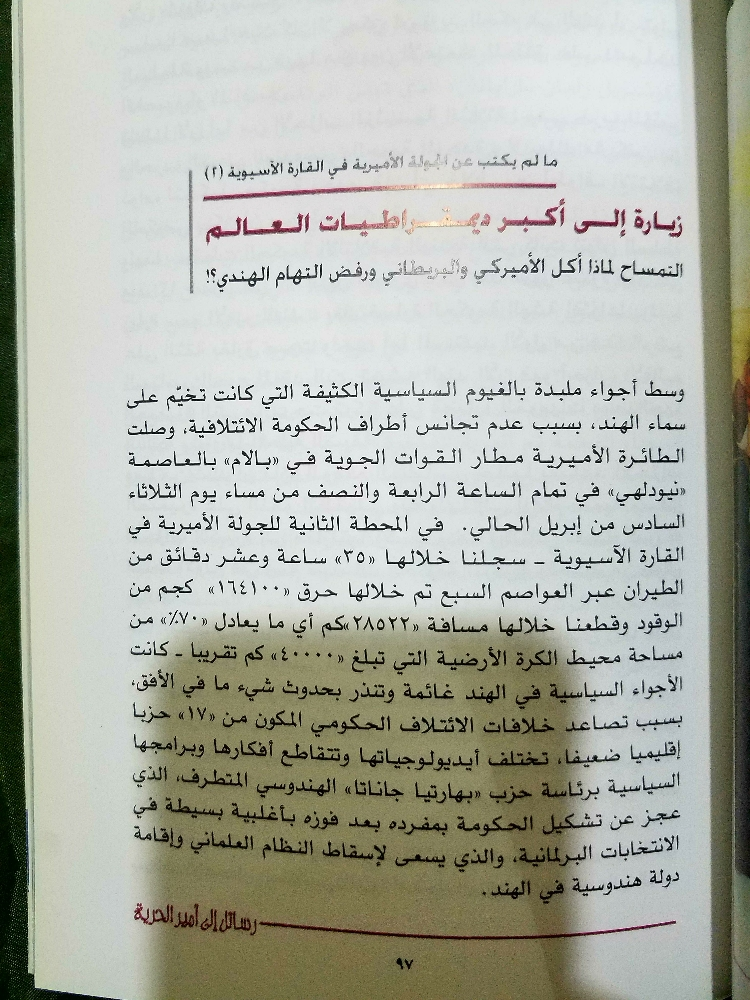 ما لم يكتب عن الجولة الأميرية في القارة الآسيوية (٢)
زيارة إلى أكبر ديمقراطيات العالم
التمساح لماذا أكل الأميركي والبريطاني ورفض التهام الهندي؟!
وسط أجواء ملبدة بالغيوم السياسية الكثيفة التي كانت تخيّم على
سماء الهند، بسبب عدم تجانس أطراف الحكومة الائتلافية، وصلت
الطائرة الأميرية مطار القوات الجوية في «بالام» بالعاصمة
«نيودلهي» في تمام الساعة الرابعة والنصف من مساء يوم الثلاثاء
السادس من إبريل الحالي. في المحطة الثانية للجولة الأميرية في
القارة الآسيوية ـ سجلنا خلالها «٣٥» ساعة وعشر دقائق من
الطيران عبر العواصم السبع تم خلالها حرق «١٦٤١٠٠» كجم من
الوقود وقطعنا خلالها مسافة «٢٨٥٢٢»كم أي ما يعادل «٧٠٪» من
مساحة محيط الكرة الأرضية التي تبلغ «٤٠٠٠٠» كم تقريبا ـ كانت
الأجواء السياسية في الهند غائمة وتنذر بحدوث شيء ما في الأفق،
بسبب تصاعد خلافات الائتلاف الحكومي المكون من «١٧» حزبا
إقليميا ضعيفا، تختلف أيديولوجياتها وتتقاطع أفكارها وبرامجها
السياسية برئاسة حزب «بهارتيا جاناتا» الهندوسي المتطرف، الذي
عجز عن تشكيل الحكومة بمفرده بعد فوزه بأغلبية بسيطة في
الانتخابات البرلمانية، والذي يسعى لإسقاط النظام العلماني وإقامة
دولة هندوسية في الهند.
رسائل إلى أمير الحرية
٩٧